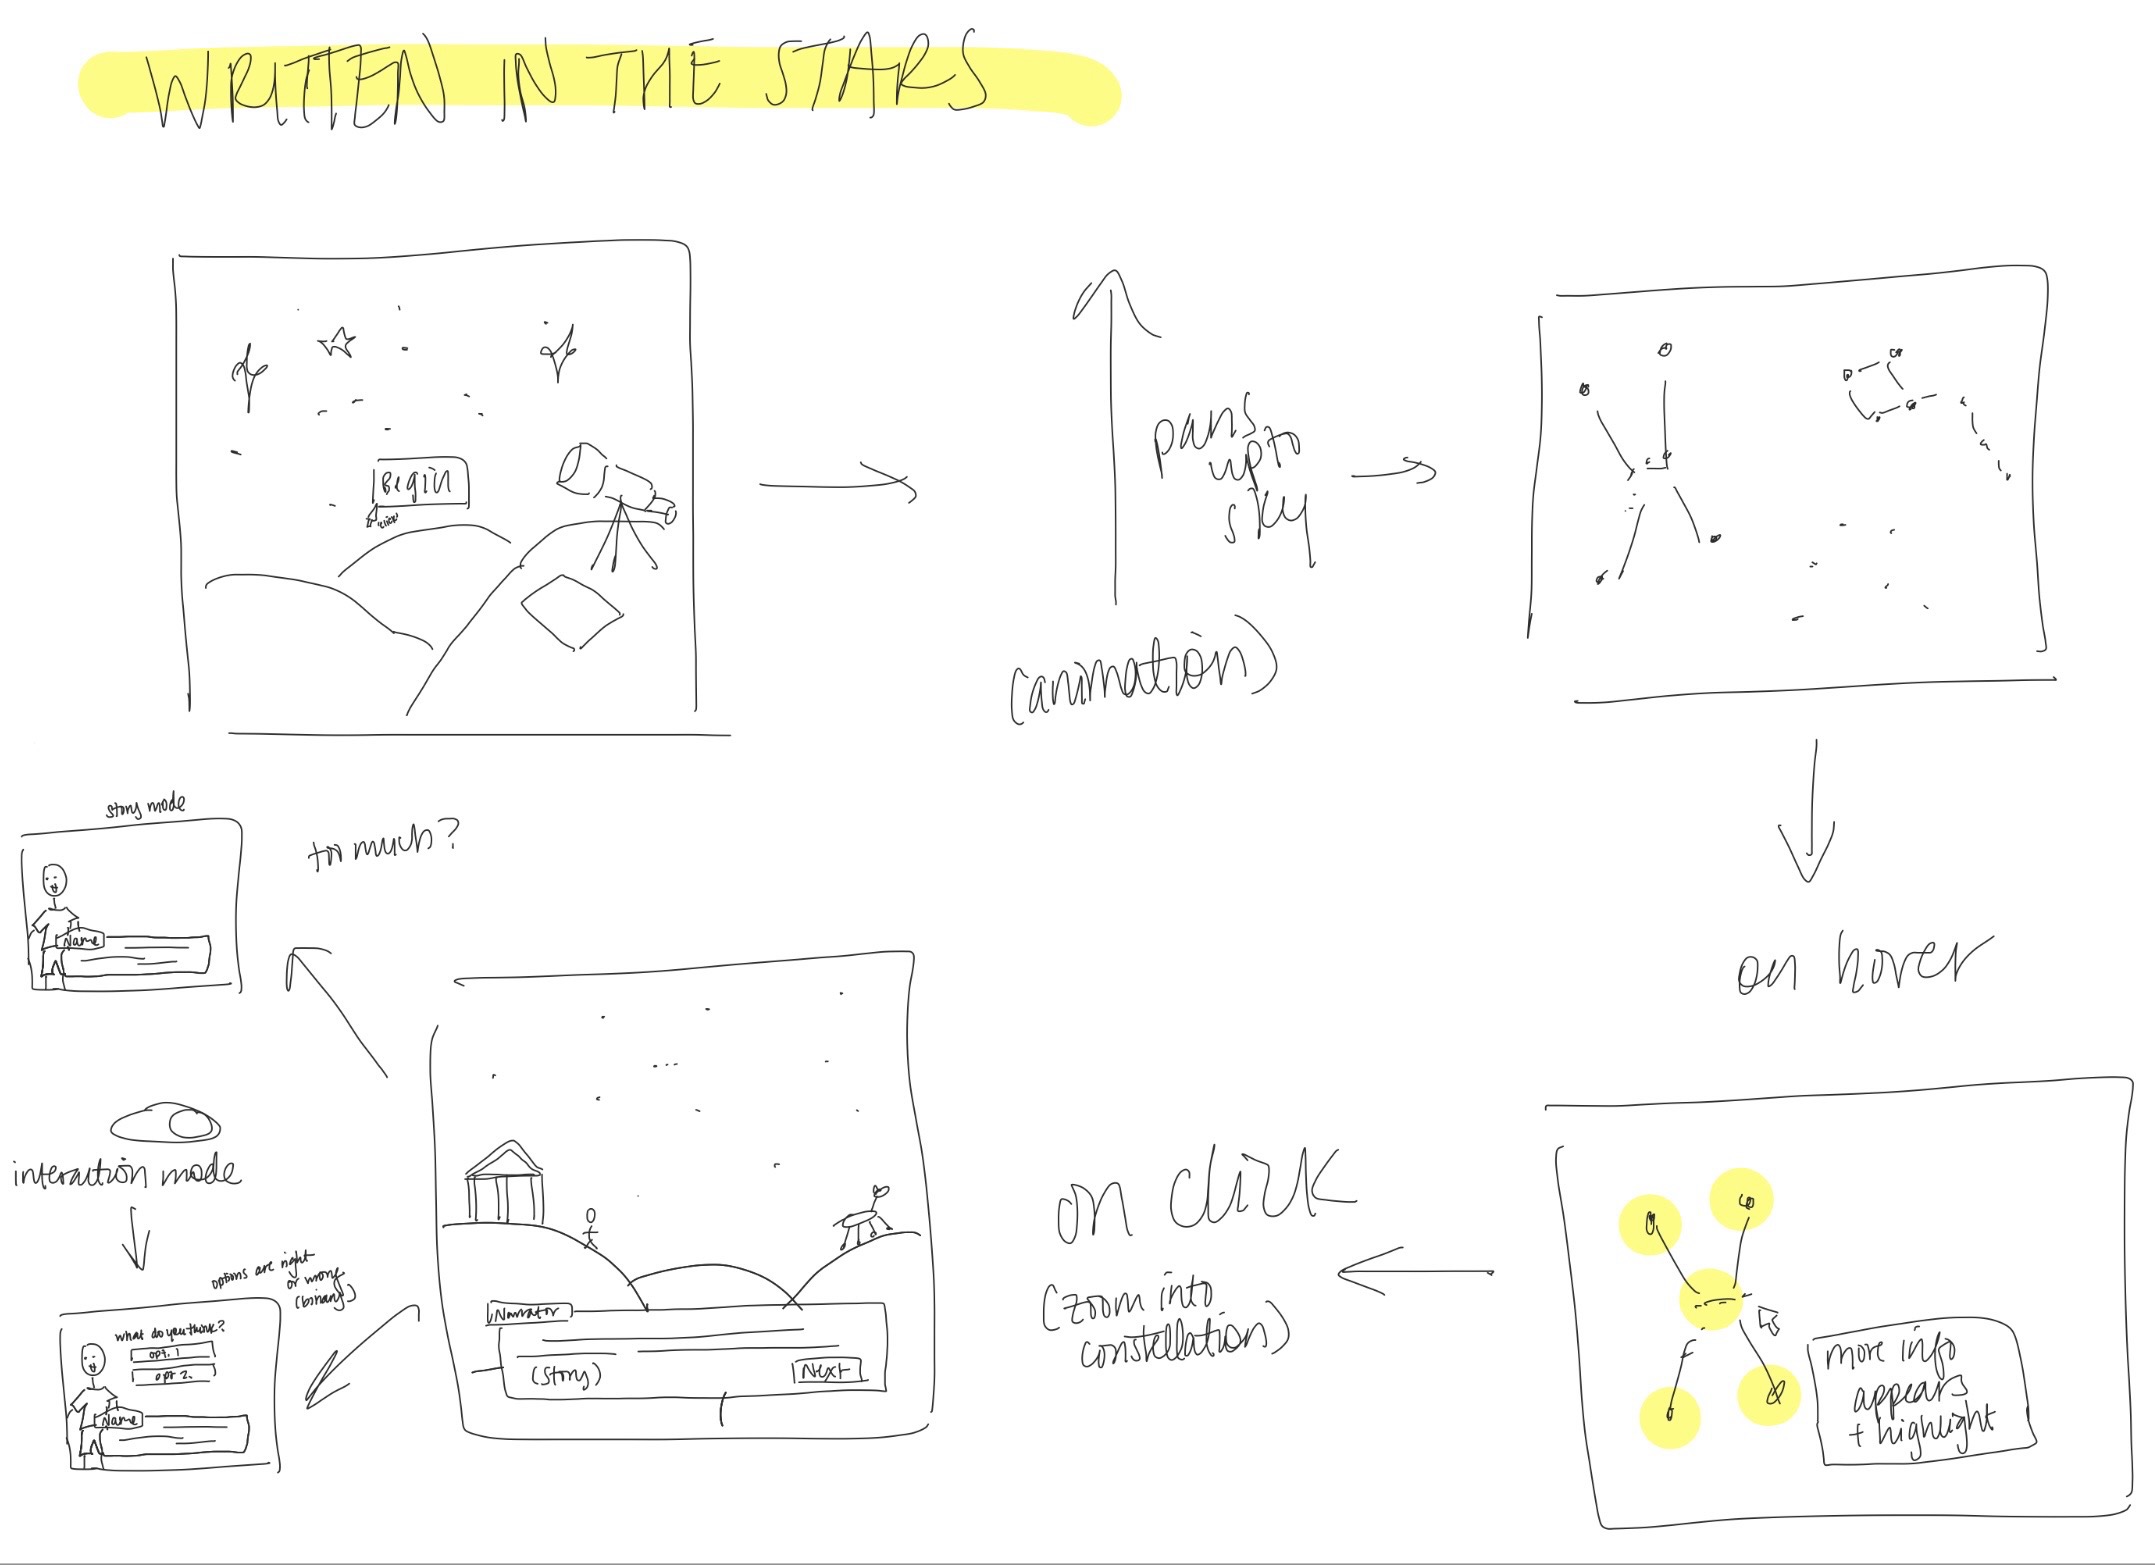 WRITTEN IN THE STARS
Begin
"click"
pans
up to
sky
(animation)
on hover
more info
appears
+ highlight
on click
(zoom into
constellation)
Narrator
(story)
Next
too much?
story mode
Name
interaction mode
options are right
or wrong
(binary)
what do you think?
opt. 1
opt 2.
Name